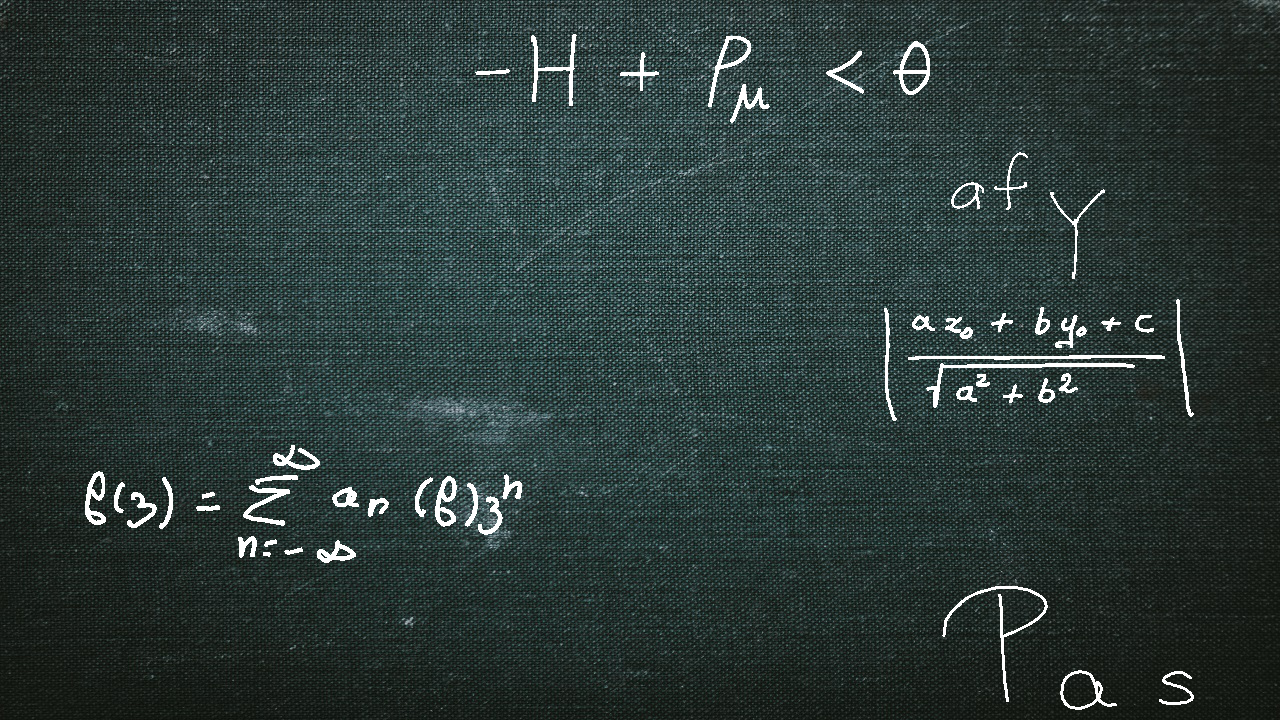 -H + P_μ < θ
a f_Y
| (a x_0 + b y_0 + c) / √(a² + b²) |
f(z) = ∑_{n=-∞}^{∞} a_n (f) z^n
P_{a s}